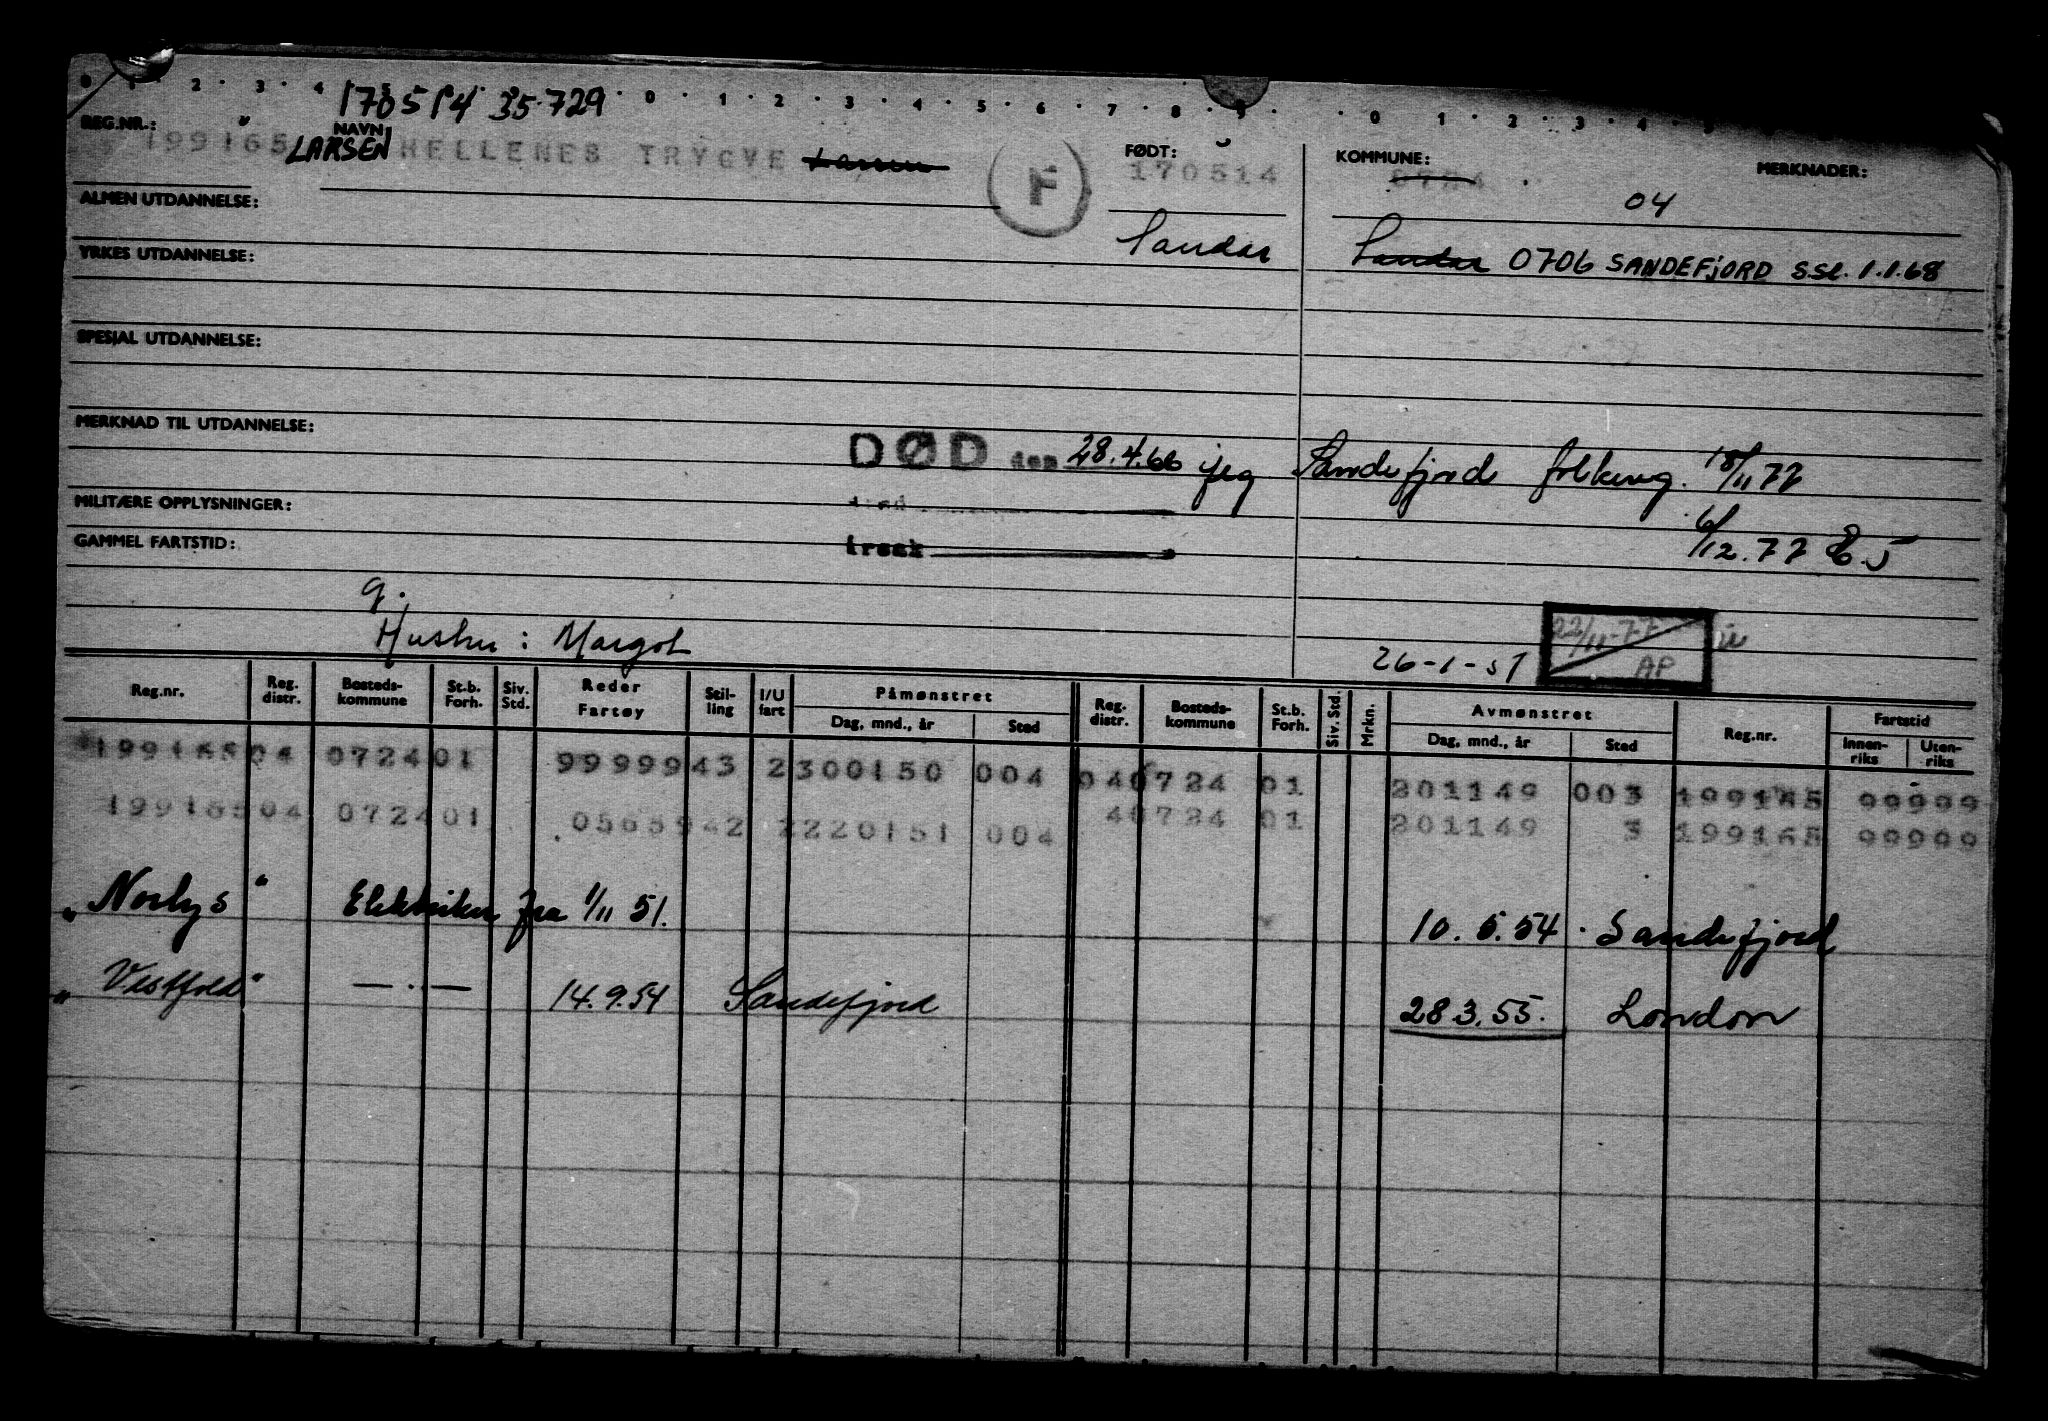 0 1 2 3 4 0 1 2 3 4 5 6 7 8 9 0 1 2 3 4 5
170514 35.729
REG.NR.: NAVN FØDT: KOMMUNE: MERKNADER:
199165 LARSEN HELLENES TRYGVE Larsen F 170514 0724
04
ALMEN UTDANNELSE:
Sandar Sandar 0706 SANDEFJORD S.St. 1.1.68
YRKES UTDANNELSE:
SPESJAL UTDANNELSE:
MERKNAD TIL UTDANNELSE:
DØD den 28.4.66 jfg Sandefjord folkereg. 18/11 77
MILITÆRE OPPLYSNINGER:
6/12.77
GAMMEL FARTSTID:
g.
Hustru: Margot
26-1-51 22/11-77 AP
Reg.nr. Reg. distr. Bosteds-kommune St.b. Forh. Siv. Std. Reder Fartøy Stil-ling I/U fart Påmønstret Dag, mnd., år Sted Reg. distr. Bosteds-kommune St.b. Forh. Siv. Std. Mrkn. Avmønstret Dag, mnd., år Sted Reg.nr. Fartstid Innen-riks Uten-riks
199165 04 0724 01 99999 43 2 300150 004 04 0724 01 201149 003 199165 99999
199165 04 0724 01 05659 42 2 220151 004 4 0724 01 201149 3 199165 99999
"Norlys" Elektriker fra 1/11 51. 10.5.54 Sandefjord
"Vestfold" — . — 14.9.54 Sandefjord 28.3.55. London